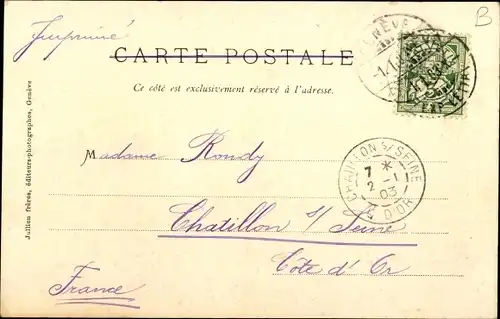 B
Imprimé
CARTE POSTALE
Ce côté est exclusivement réservé à l'adresse.
Madame Rondy
Chatillon s/ Seine
Côte d'Or
France
Jullien frères, éditeurs-photographes, Genève
GENÈVE
CHATILLON S/ SEINE
7 *
2 -1
03
D'OR